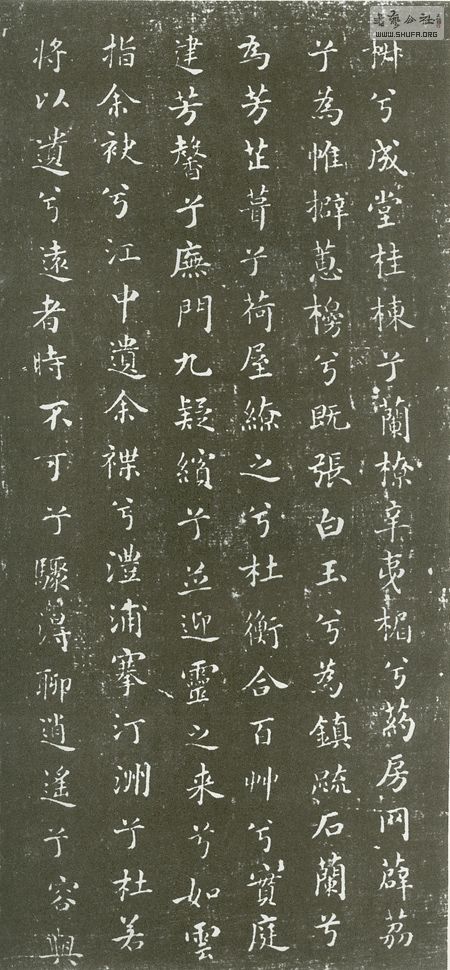 書藝公社
WWW.SHUFA.ORG
椒兮成堂桂棟兮蘭橑辛夷楣兮葯房网薜荔
兮為帷擗蕙櫋兮既張白玉兮為鎮疏石蘭兮
為芳芷葺兮荷屋繚之兮杜衡合百艸兮實庭
建芳馨兮廡門九疑繽兮並迎靈之来兮如雲
指余袂兮江中遺余褋兮澧浦搴汀洲兮杜若
將以遺兮遠者時不可兮驟淂聊逍遙兮容與